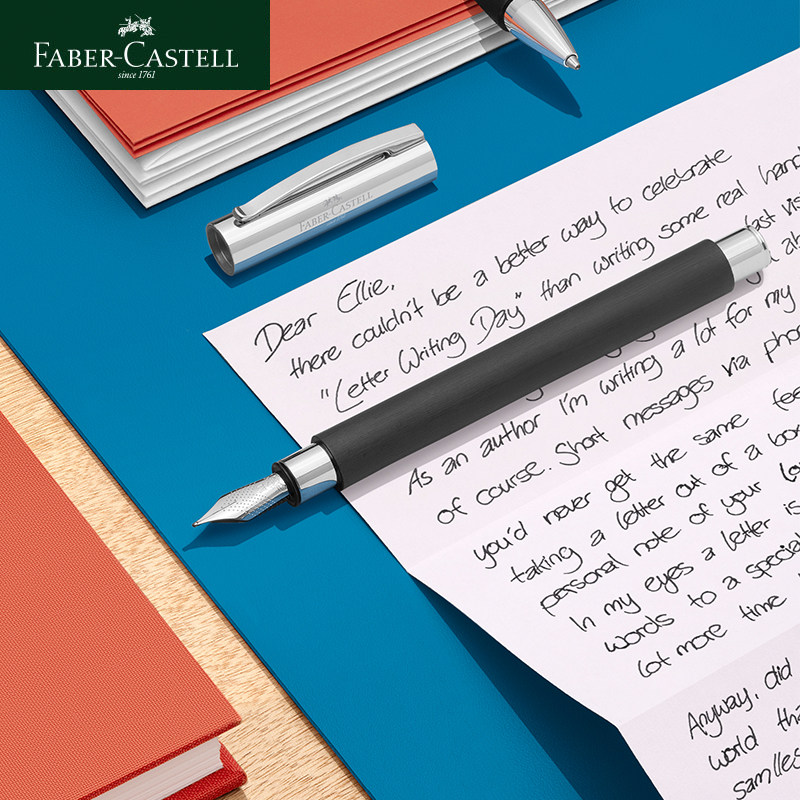 FABER-CASTELL
since 1761
FABER-CASTELL
Dear Ellie,
there couldn't be a better way to celebrate
"Letter Writing Day" than writing some real hand
last vis
As an author I'm writing a lot for my
of course. Short messages via phon
you'd never get the same fee
taking a letter out of a bo
personal note of your lov
In my eyes a letter is
words to a special
lot more time
Anyway, did
world tha
samlles